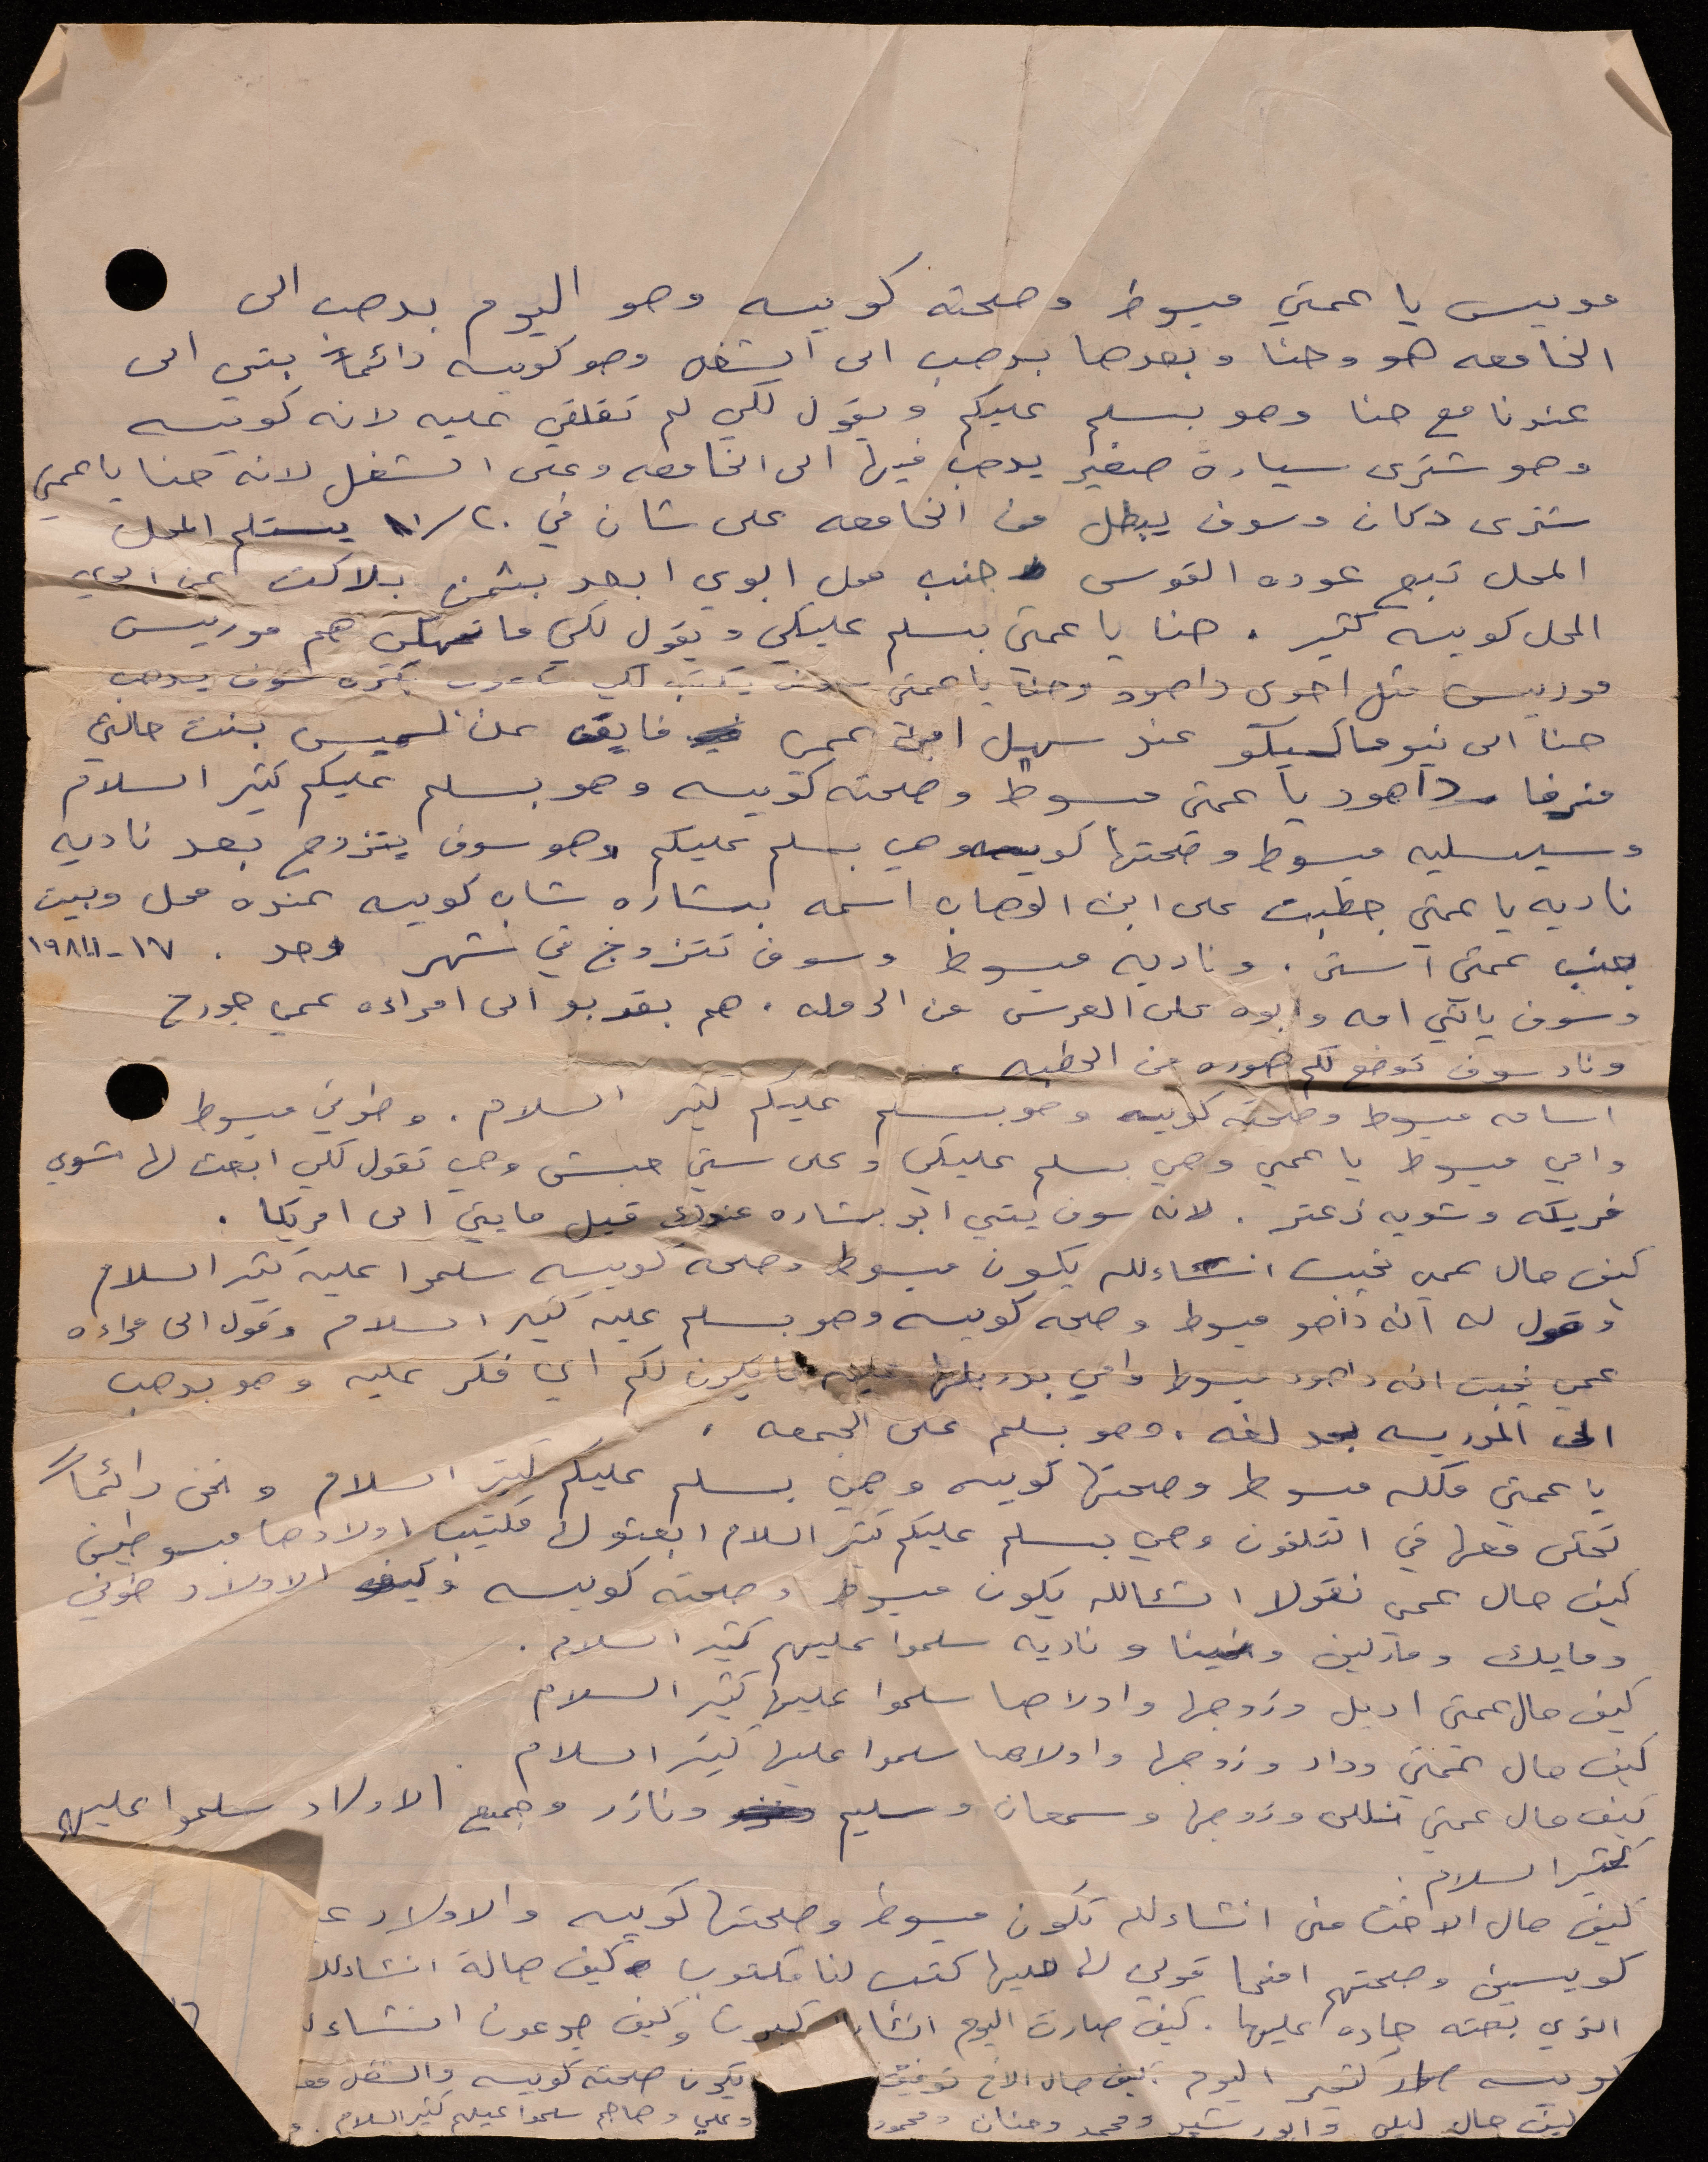 موريس يا عمتي مبسوط وصحته كويسه وهو اليوم بدهب الى
الجامعه هو وحنا وبعدها بدهب الى الشغل وهو كويسه دائماً بتي الى
عندنا مع حنا وهو بسلم عليكم ويقول لكي لم تقلقي عليه لانه كويسه
وهو شترى سيارة صغير يدهب فيها الى الجامعه وعلى الشغل لانه حنا يا عمتي
شترى دكان وسوف يبطل من الجامعه على شان في ٢٠/ يستلم المحل
المحل تبع عوده القوسى جنب محل ابوي ابعد بشمن بلاكت عن
المحل كويسه كثير . حنا يا عمتي بسلم عليكي ويقول لكي ما هم موريس
موريس مثل اخوى داهود وحنا يا عمتي سوف يكتب لكي بكره سوف يدهب
حنا الى نيوماكسيكو عند سهيل ابن عمي فايق عن لميس بنت خالتي
ميرفا داهود يا عمتي مبسوط وصحته كويسه وهو بسلم عليكم كثير السلام
وسيسليه مبسوط وصحتها كويسه وهي بسلم عليكم وهو سوف يتزوج بعد ناديه
ناديه يا عمتي خطبت على ابن الوهاب اسمه بشاره شاب كويسه عنده محل وبيت
جنب عمتي استر . وناديه مبسوط وسوف تتزوج في شهر وحد . ١٧-
وسوف ياتي امه وابوه على العرس من الرمله . هم بقربو الى امراءه عمي جورج
وناد سوف توضع لكم صوره من الخطبه .
اسامه مبسوط وصحته كويسه وهو بسلم عليكم كثير السلام . وطوني مبسوط
وامي مبسوط يا عمتي وهي بسلم عليكي وعلى ستي حبشه وهي تقول لكي ابعت لها شوي
فريكه وشويه زعتر . لانه سوف يتي ابو بشاره عندك قبل ما يتي الى امريكا .
كيف حال عمي نجيب انشاءلله يكون مبسوط وصحه كويسه سلموا عليه كثير السلام
وقول له انه داهو مبسوط وصحه كويسه وهو بسلم عليه كثير السلام وقول الى مراءه
عمي نجيب انه داهود مبسوط وامي ما يكون لكم اي فكر عليه وهو بدهب
الى المدرسه لغه . وهو بسلم على الجمعه .
يا عمتي ملكه مبسوط وصحتها كويسه وهي بسلم عليكم كثير السلام ونحن دائماً
نحكى معها في التلفون وهي بسلم عليكم كثير السلام ابعتولها مكتيب اولادها مبسوطين
كيف حال عمي نقولا انشالله يكون مبسوط وصحته كويسه وكيف الاولاد طوني
ومايك ومارلين ونينا وناديه سلموا عليهم كثير السلام .
كيف حال عمتي اديل وزوجها واولادها سلموا عليها كثير السلام
كيف حال عمتي وداد وزوجها واولادها سلموا عليها كثير السلام .
كيف حال عمتي نللى وزوجها وسمعان وسليم ونادر وجميع الاولاد سلموا عليهم
كثير السلام .
كيف حال الاخت منى انشاءلله تكون مبسوط وصحتها كويسه والاولاد ع
كويسين وصحتهم قولي لها كتب لنا مكتوب كيف حالة انشاءلله
الذي بعته جاره عليها . كيف صارت اليوم كبرت وكيف جدعون انشاء
كويسه صار كبير اليوم كيف حال الاخ توفيق يكون صحته كويسه والشغل مع
كيف حال ليلى وابو رشيد ومحمد وحنان ومحمود وعلي وهاجر سلموا عليهم كثير السلام . و